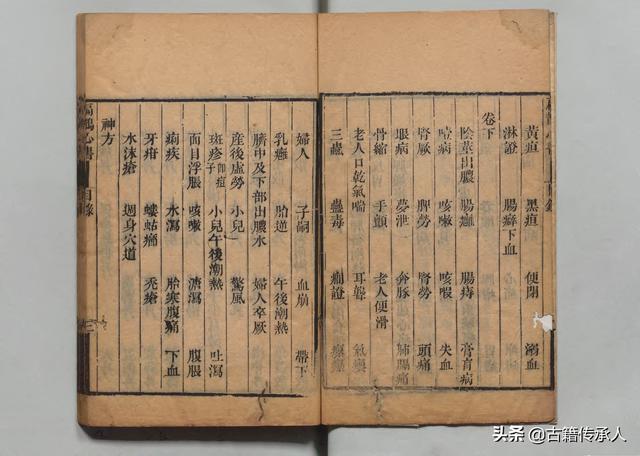 黃疸 黑疸 便閉 溺血
淋證 腸癖下血
卷下
陰莖出膿 腸癰 腸痔 膏肓病
咳嗽 咳嗄 失血
腎厥 脾勞 腎勞 頭痛
眼病 夢泄 奔豚 肺膈痛
骨縮 手顫 老人便滑
老人口乾氣喘 耳聾
三蟲 蠱毒 癇證
婦人 子嗣 血崩 帶下
乳癰 胎逆 午後潮熱
臍中及下部出膿水 婦人卒厥
產後虛勞 小兒 驚風
斑疹 即痘子 小兒午後潮熱 吐瀉
面目浮脹 咳嗽 溏瀉 腹脹
痢疾 水瀉 胎寒腹痛 下血
牙疳 螻蛄癤 禿瘡
水沫瘡 週身穴道
神方
扁鵲心書 目錄 三
头条 @古籍传承人